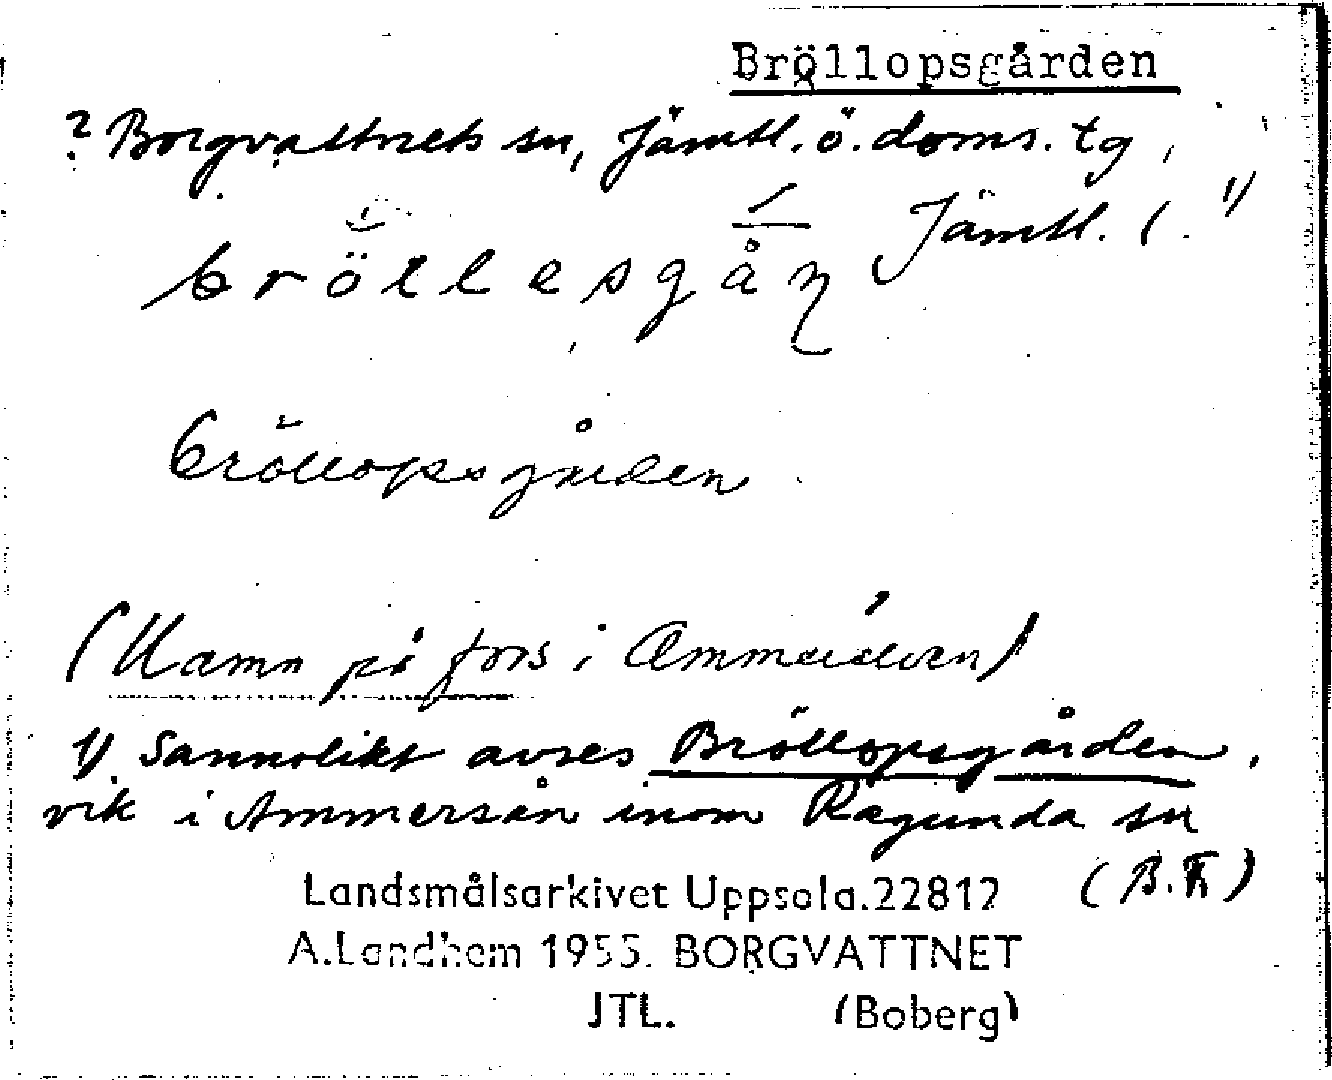 Bröllopsgården
? Borgvattnets sn, Jämtl. ö. doms. tg,
Jämtl. l. 1)
bröllesgåɳ
bröllopsgården
(Namn på fors i Ammerälven)
1) Sannolikt avses Bröllopsgården,
vik i Ammerån inom Ragunda sn
(B. Fh)
Landsmålsarkivet Uppsala.22812
A.Landhem 1955. BORGVATTNET
JTL. (Boberg)